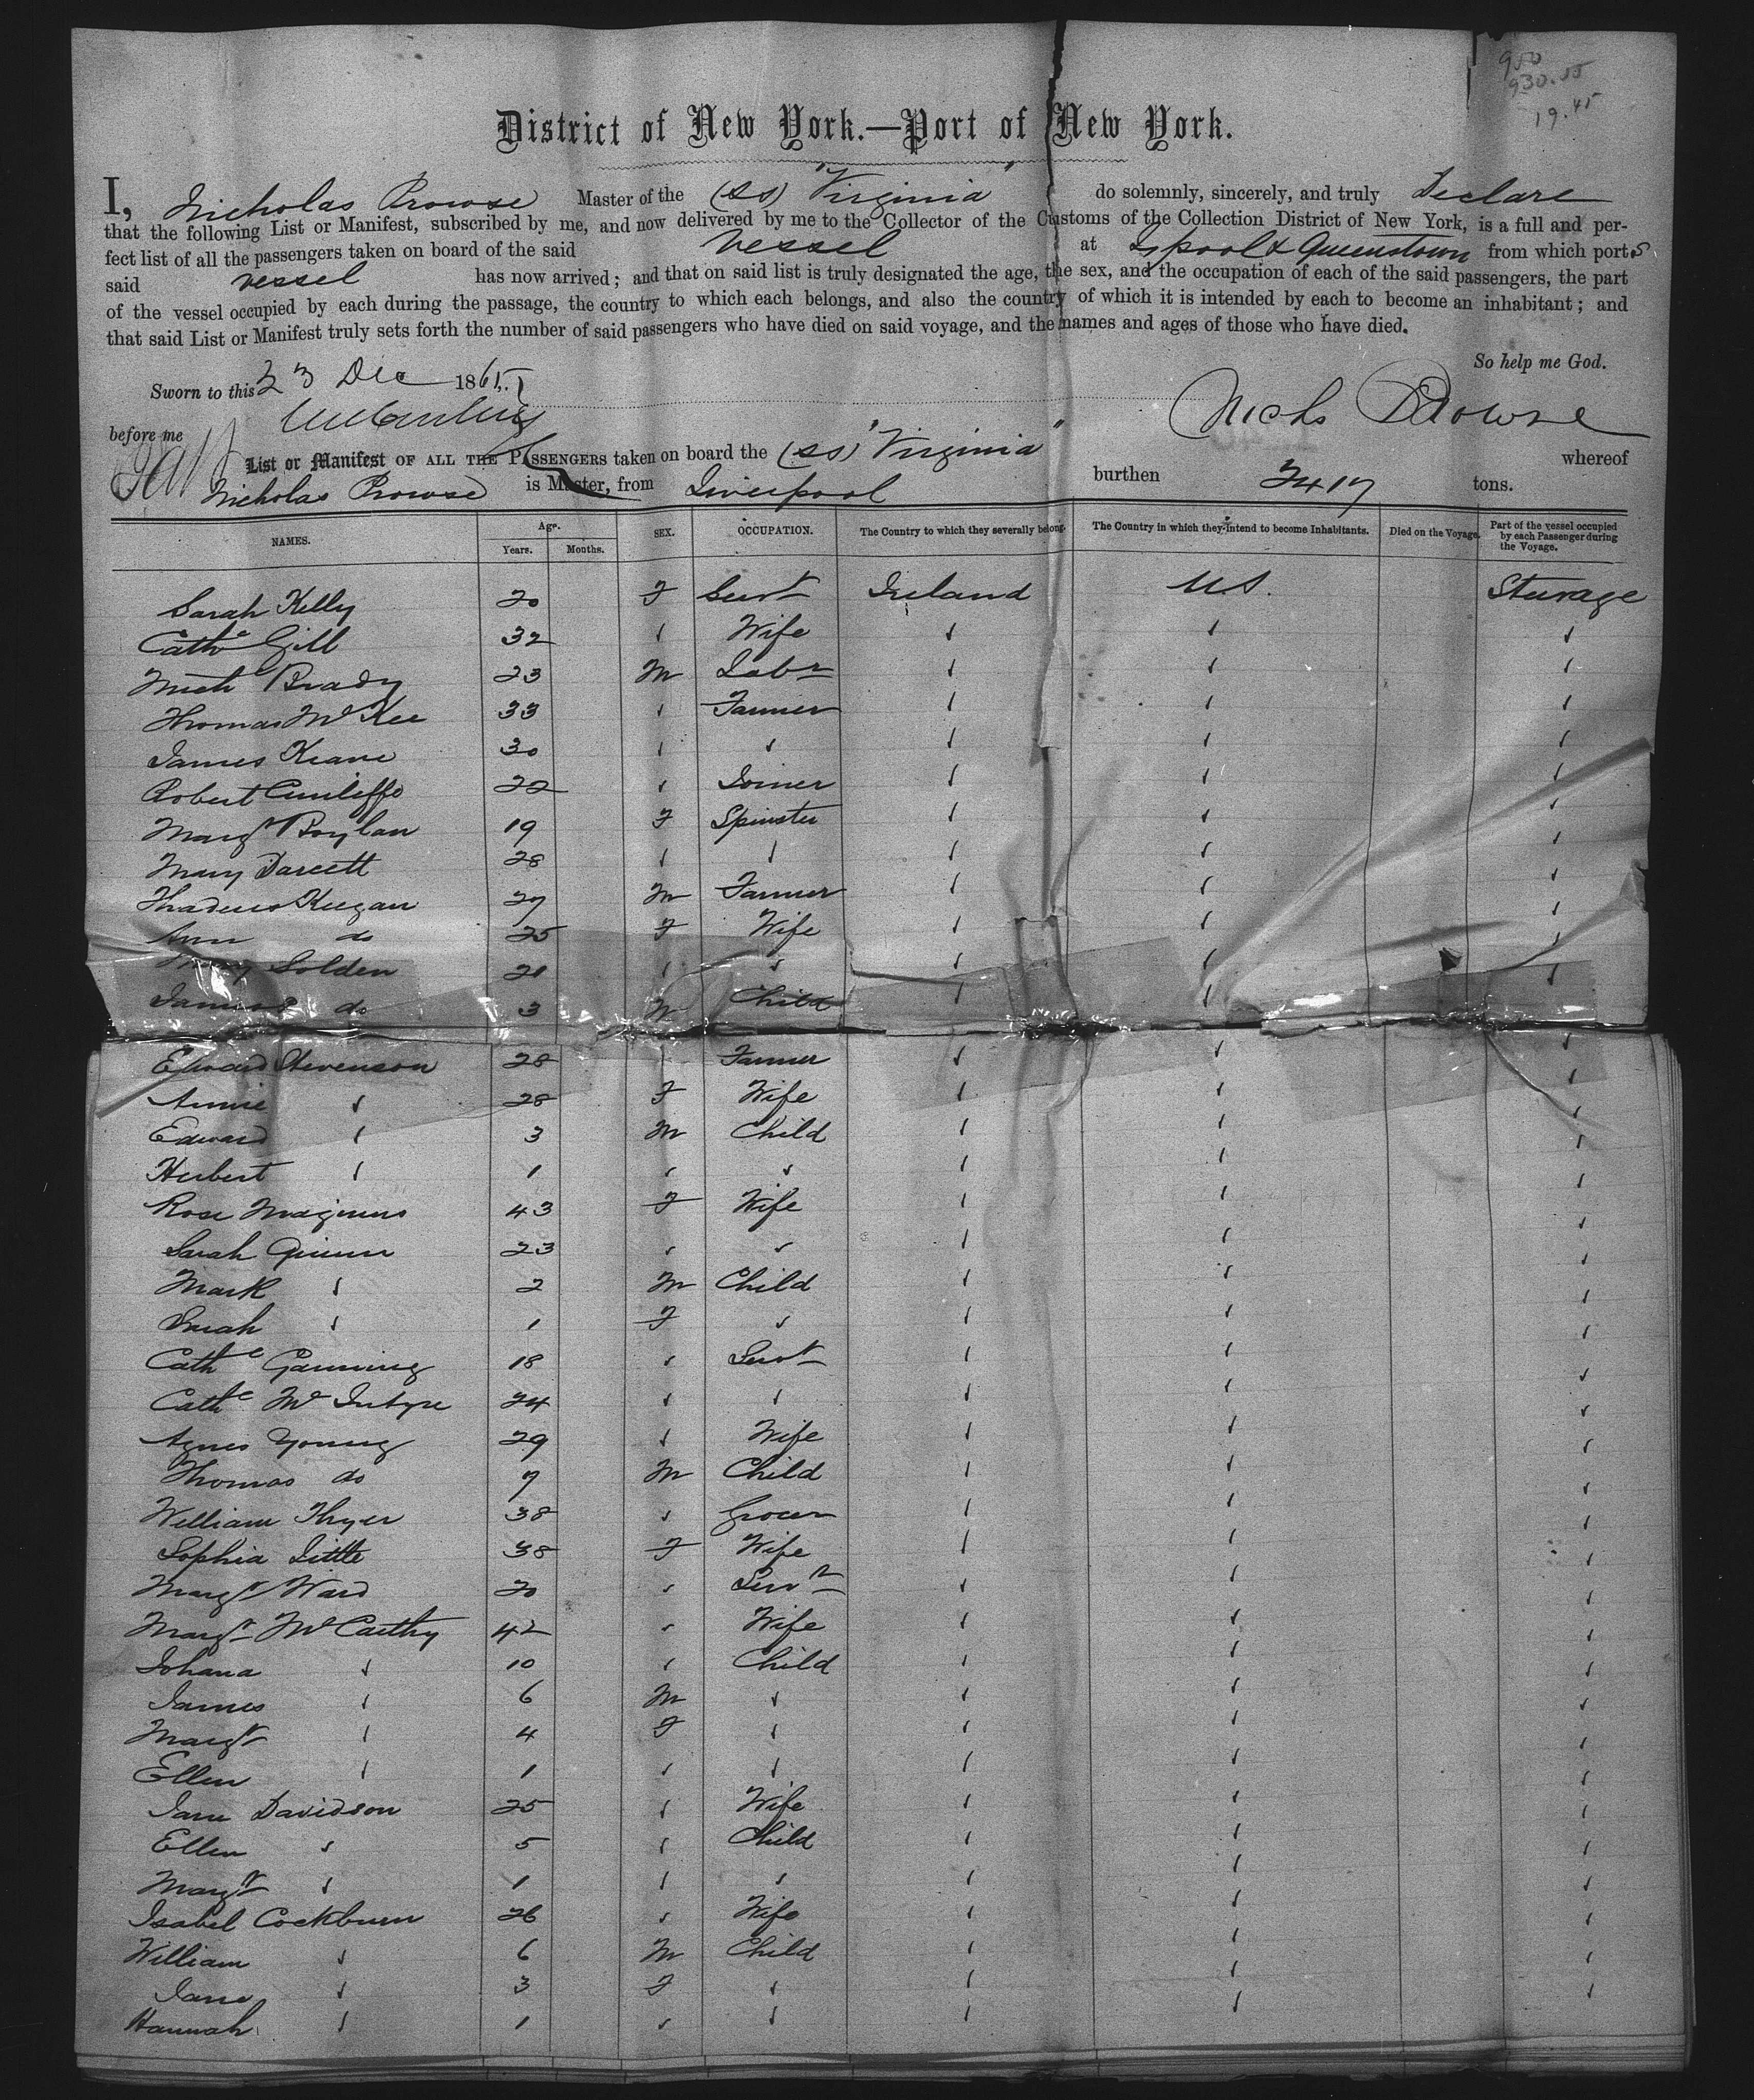 950
930.55
19.45
District of New York.—Port of New York.
I, Nicholas Prowse Master of the (SS) "Virginia" do solemnly, sincerely, and truly Declare
that the following List or Manifest, subscribed by me, and now delivered by me to the Collector of the Customs of the Collection District of New York, is a full and per-
fect list of all the passengers taken on board of the said Vessel at Lpool & Queenstown from which ports
said vessel has now arrived; and that on said list is truly designated the age, the sex, and the occupation of each of the said passengers, the part
of the vessel occupied by each during the passage, the country to which each belongs, and also the country of which it is intended by each to become an inhabitant; and
that said List or Manifest truly sets forth the number of said passengers who have died on said voyage, and the names and ages of those who have died.
So help me God.
Sworn to this 23 Dec 1865
before me
Nichs Prowse
List or Manifest OF ALL THE PASSENGERS taken on board the (SS) "Virginia" whereof
Nicholas Prowse is Master, from Liverpool burthen 2417 tons.
NAMES. Age. Years. Months. SEX. OCCUPATION. The Country to which they severally belong. The Country in which they intend to become Inhabitants. Died on the Voyage. Part of the vessel occupied by each Passenger during the Voyage.
Sarah Kelly 20 F Servt Ireland U.S. Steerage
Cathe Gill 32 Wife
Mich Brady 23 M Labr
Thomas McKee 33 Farmer
James Keane 30
Robert Cunliffe 22 Joiner
Margt Boylan 19 F Spinster
Mary Darcett 28
Thadeus Keegan 27 M Farmer
Ann do 25 F Wife
Mary Solden 21
James do 3 M Child
Edward Stevenson 28 Farmer
Annie 28 F Wife
Edward 3 M Child
Herbert 1
Rose Maginns 43 F Wife
Sarah Quinn 23
Mark 2 M Child
Sarah 1 F
Cathe Ganning 18 Servt
Cathe McIntyre 24
Agnes Young 29 Wife
Thomas do 7 M Child
William Thyer 38 Grocer
Sophia Little 38 F Wife
Margt Ward 20 Servt
Margt McCarthy 42 Wife
Johana 10 Child
James 6 M
Margt 4 F
Ellen 1
Jane Davidson 25 Wife
Ellen 5 Child
Margt 1
Isabel Cockburn 26 Wife
William 6 M Child
Jane 3 F
Hannah 1